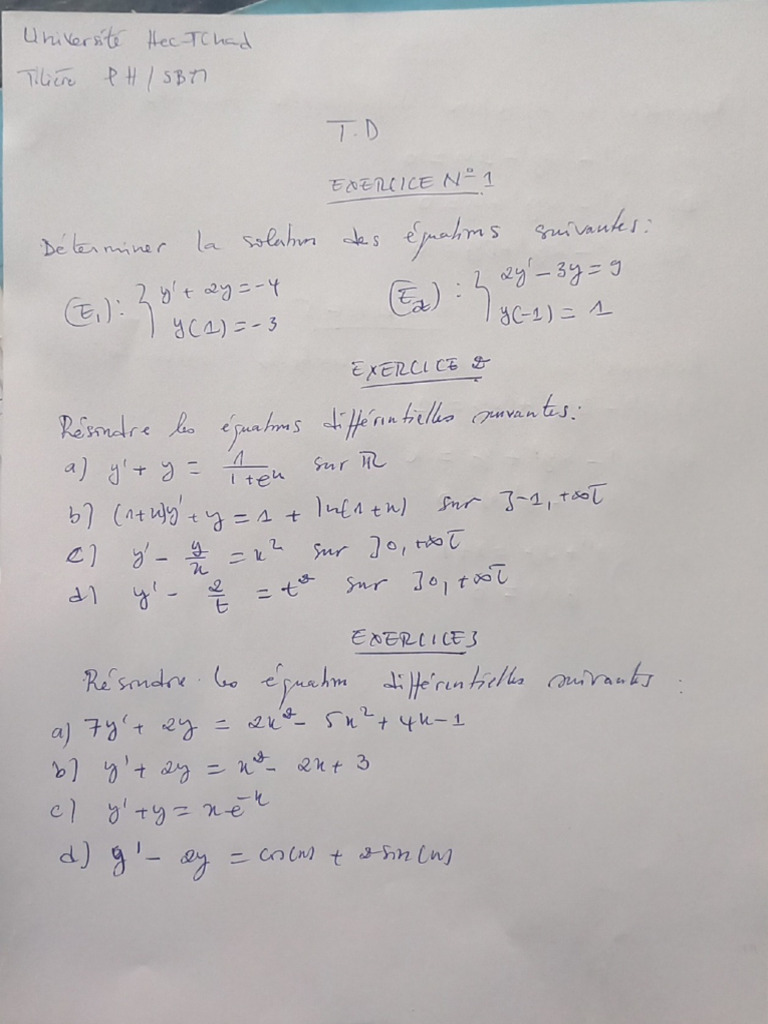 Université Hec-Tchad
Filière PH/SBM
T.D
EXERCICE N° 1
Déterminer la solution des équations suivantes:
(E₁): { y' + 2y = -4 (E₂): { 2y' - 3y = 9
y(1) = -3 y(-1) = 1
EXERCICE 2
Résoudre les équations différentielles suivantes:
a) y' + y = 1/(1+eˣ) sur ℝ
b) (1+x)y' + y = 1 + ln(1+x) sur ]-1, +∞[
c) y' - y/x = x² sur ]0, +∞[
d) y' - 2/t = t² sur ]0, +∞[
EXERCICE 3
Résoudre les équation différentielles suivantes :
a) 7y' + 2y = 2x² - 5x² + 4x - 1
b) y' + 2y = x² - 2x + 3
c) y' + y = xe⁻ˣ
d) y' - 2y = cos(x) + 2sin(x)